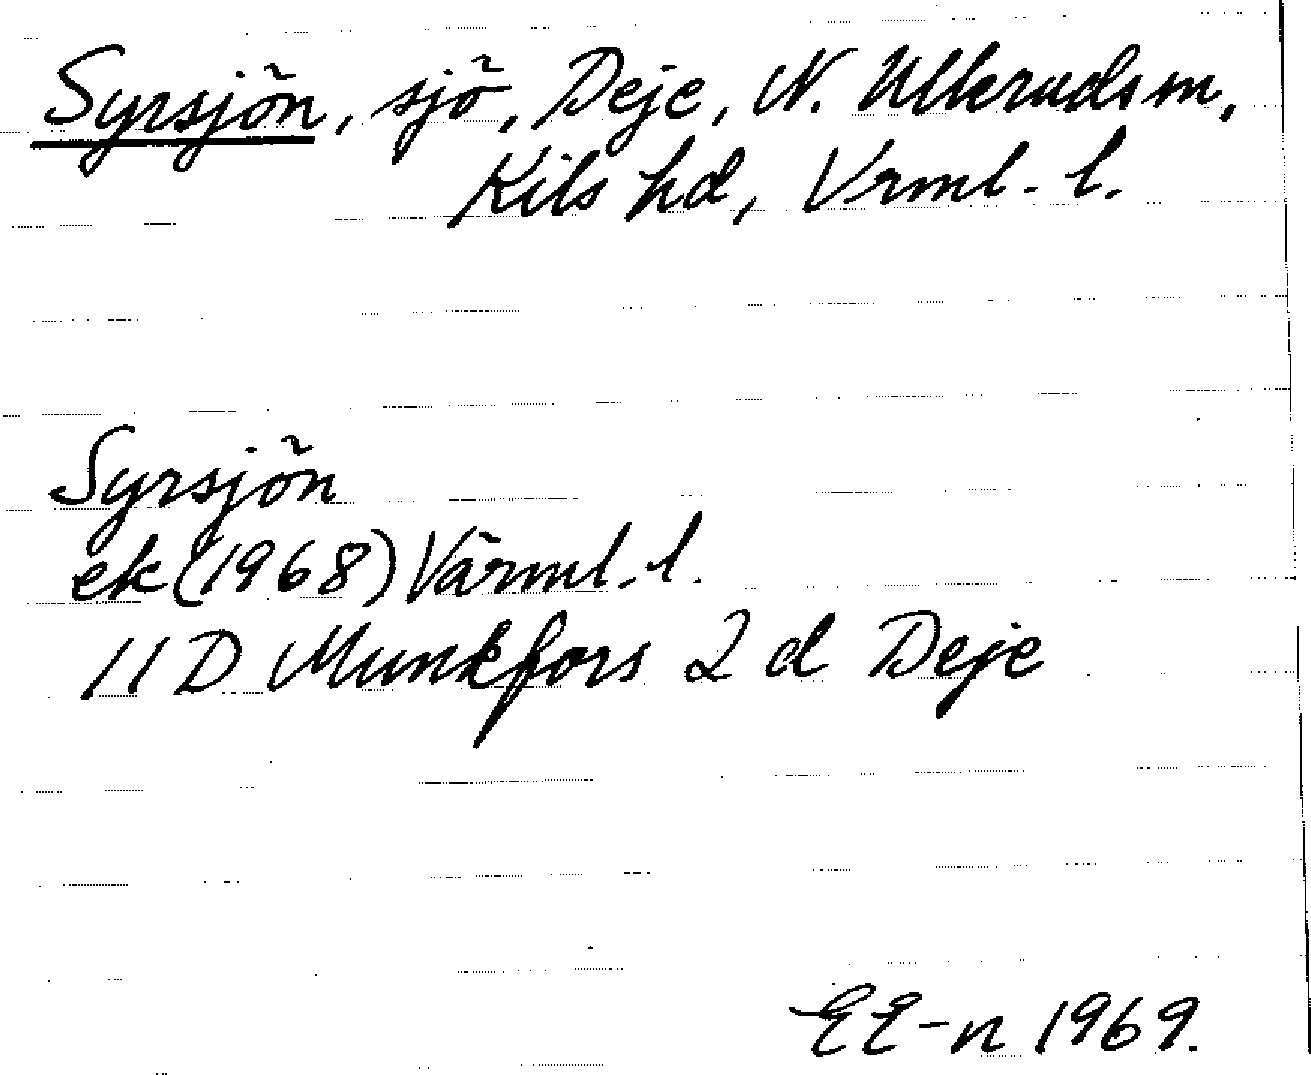 Syrsjön, sjö, Deje, N. Ulleruds m,
Kils hd, Vrml. l.
Syrsjön
ek (1968) Värml. l.
11 D Munkfors 2 d Deje
EE-n 1969.